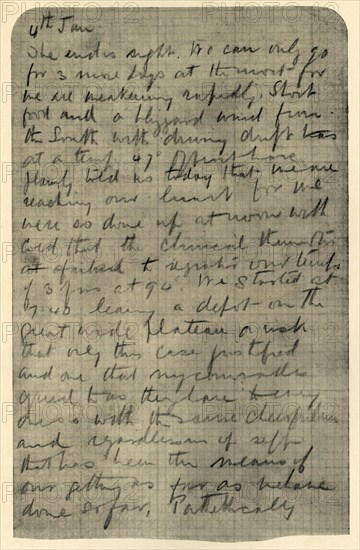 4th Jan
The end is sight. We can only go
for 3 more days at the most for
we are weakening rapidly, Short
food and a blizzard wind from
the South with driving drift
at a temp 47° of frost have
plainly told us today that we are
reaching our limit for we
were so done up at noon with
cold that the clinical thermometer
failed to register our temps
of 3 of us at 94°. We started at
7.40 leaving a depot on the
great wide plateau a risk
that only this case justified
and one that my comrades
agreed to as they have to every
one so with the same cheerfulness
and regardlessness of self
that has been the means of
our getting as far as we have
done so far, Pathetically